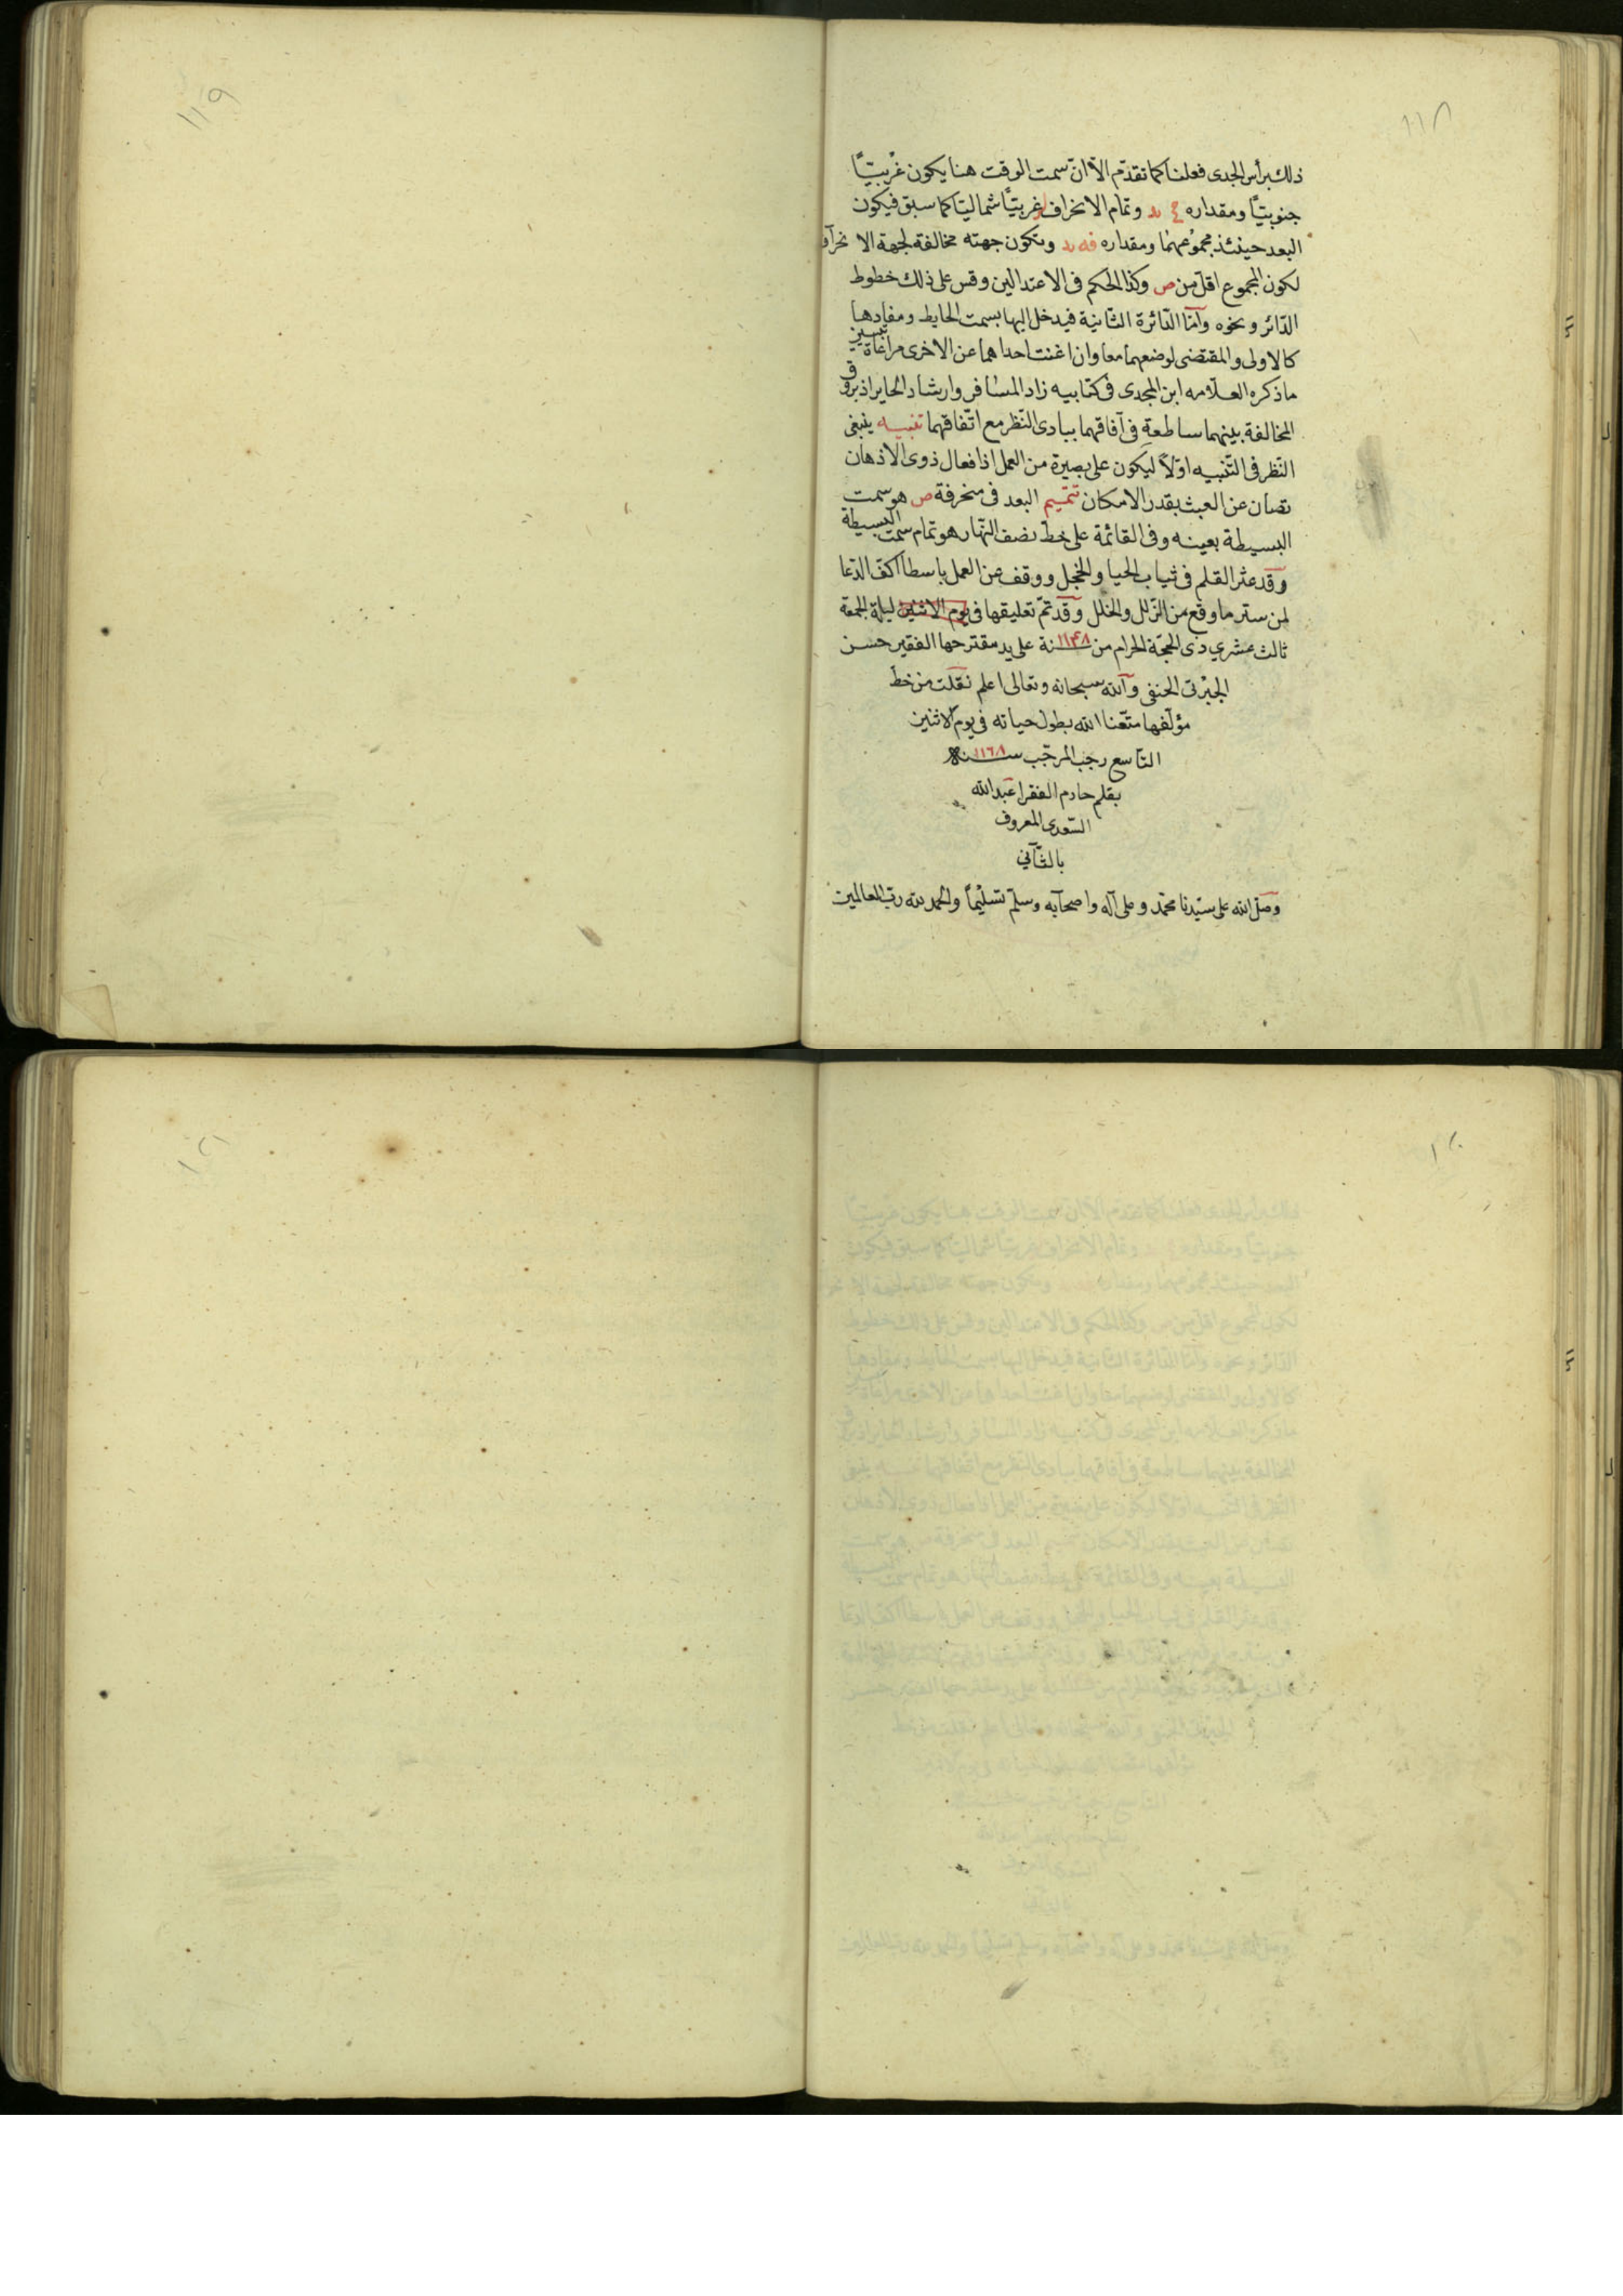 ١١٨
ذلك برأس الجدى فعلنا كما تقدّم الّا انّ سمت الوقت هنا يكون غربيّاً
جنوبيّاً ومقداره وتمام الانحراف غربيّاً شماليّا كما سبق فيكون
البعد حينئذ مجموعهما ومقداره وتكون جهته مخالفة لجهة الانحراف
لكون المجموع اقلّ من ص وكذا الحكم فى الاعتدالين وقس على ذلك خطوط
الدّائر ونحوه وآمّا الدّائرة الثّانية فيدخل اليها بسمت الحايط ومفادها
كالاولى والمقتضى لوضعهما معا وان اغنت احداهما عن الاخرى مراعاة تيسير
ماذكره العلّامه ابن المجدى فى كتابيه زاد المسافر وارشاد الحاير اذ بروق
المخالفة بينهما ساطعة فى آفاقهما ببادى النّظر مع اتّفاقهما تنبيه ينبغى
النّظر فى التّنبيه اوّلاً ليكون على بصيرة من العمل اذا فعال ذوى الاذهان
تصان عن العبث بقدر الامكان تتميم البعد فى منحرفة ص هو سمت
البسيطة بعينه وفى القائمة على خطّ نصف النّهار هو تمام سمت البسيطة
وقد عثر القلم فى ثياب الحيا والخجل ووقف عن العمل باسطا اكفّ الدّعا
لمن ستر ما وقع من الزّلل والخلل وقد تمّ تعليقها فى يوم الاثنين ليلة الجمعة
ثالث عشرى ذى الحجّة الحرام من سنة ١١٤٨ على يد مقترحها الفقير حسن
الجبرتى الحنفى وآلله سبحانه وتعالى اعلم نقلت من خطّ
مؤلّفها متّعنا الله بطول حياته فى يوم الاثنين
التّاسع رجب المرجّب سنة ١١٦٨
بقلم خادم الفقرا عبد الله
السّعدى المعروف
بالثّآنى
وصلّى الله على سيّدنا محمّد وعلى آله واصحابه وسلّم تسليماً والحمد لله ربّ العالمين
١١٩
١٢٠
١٢١